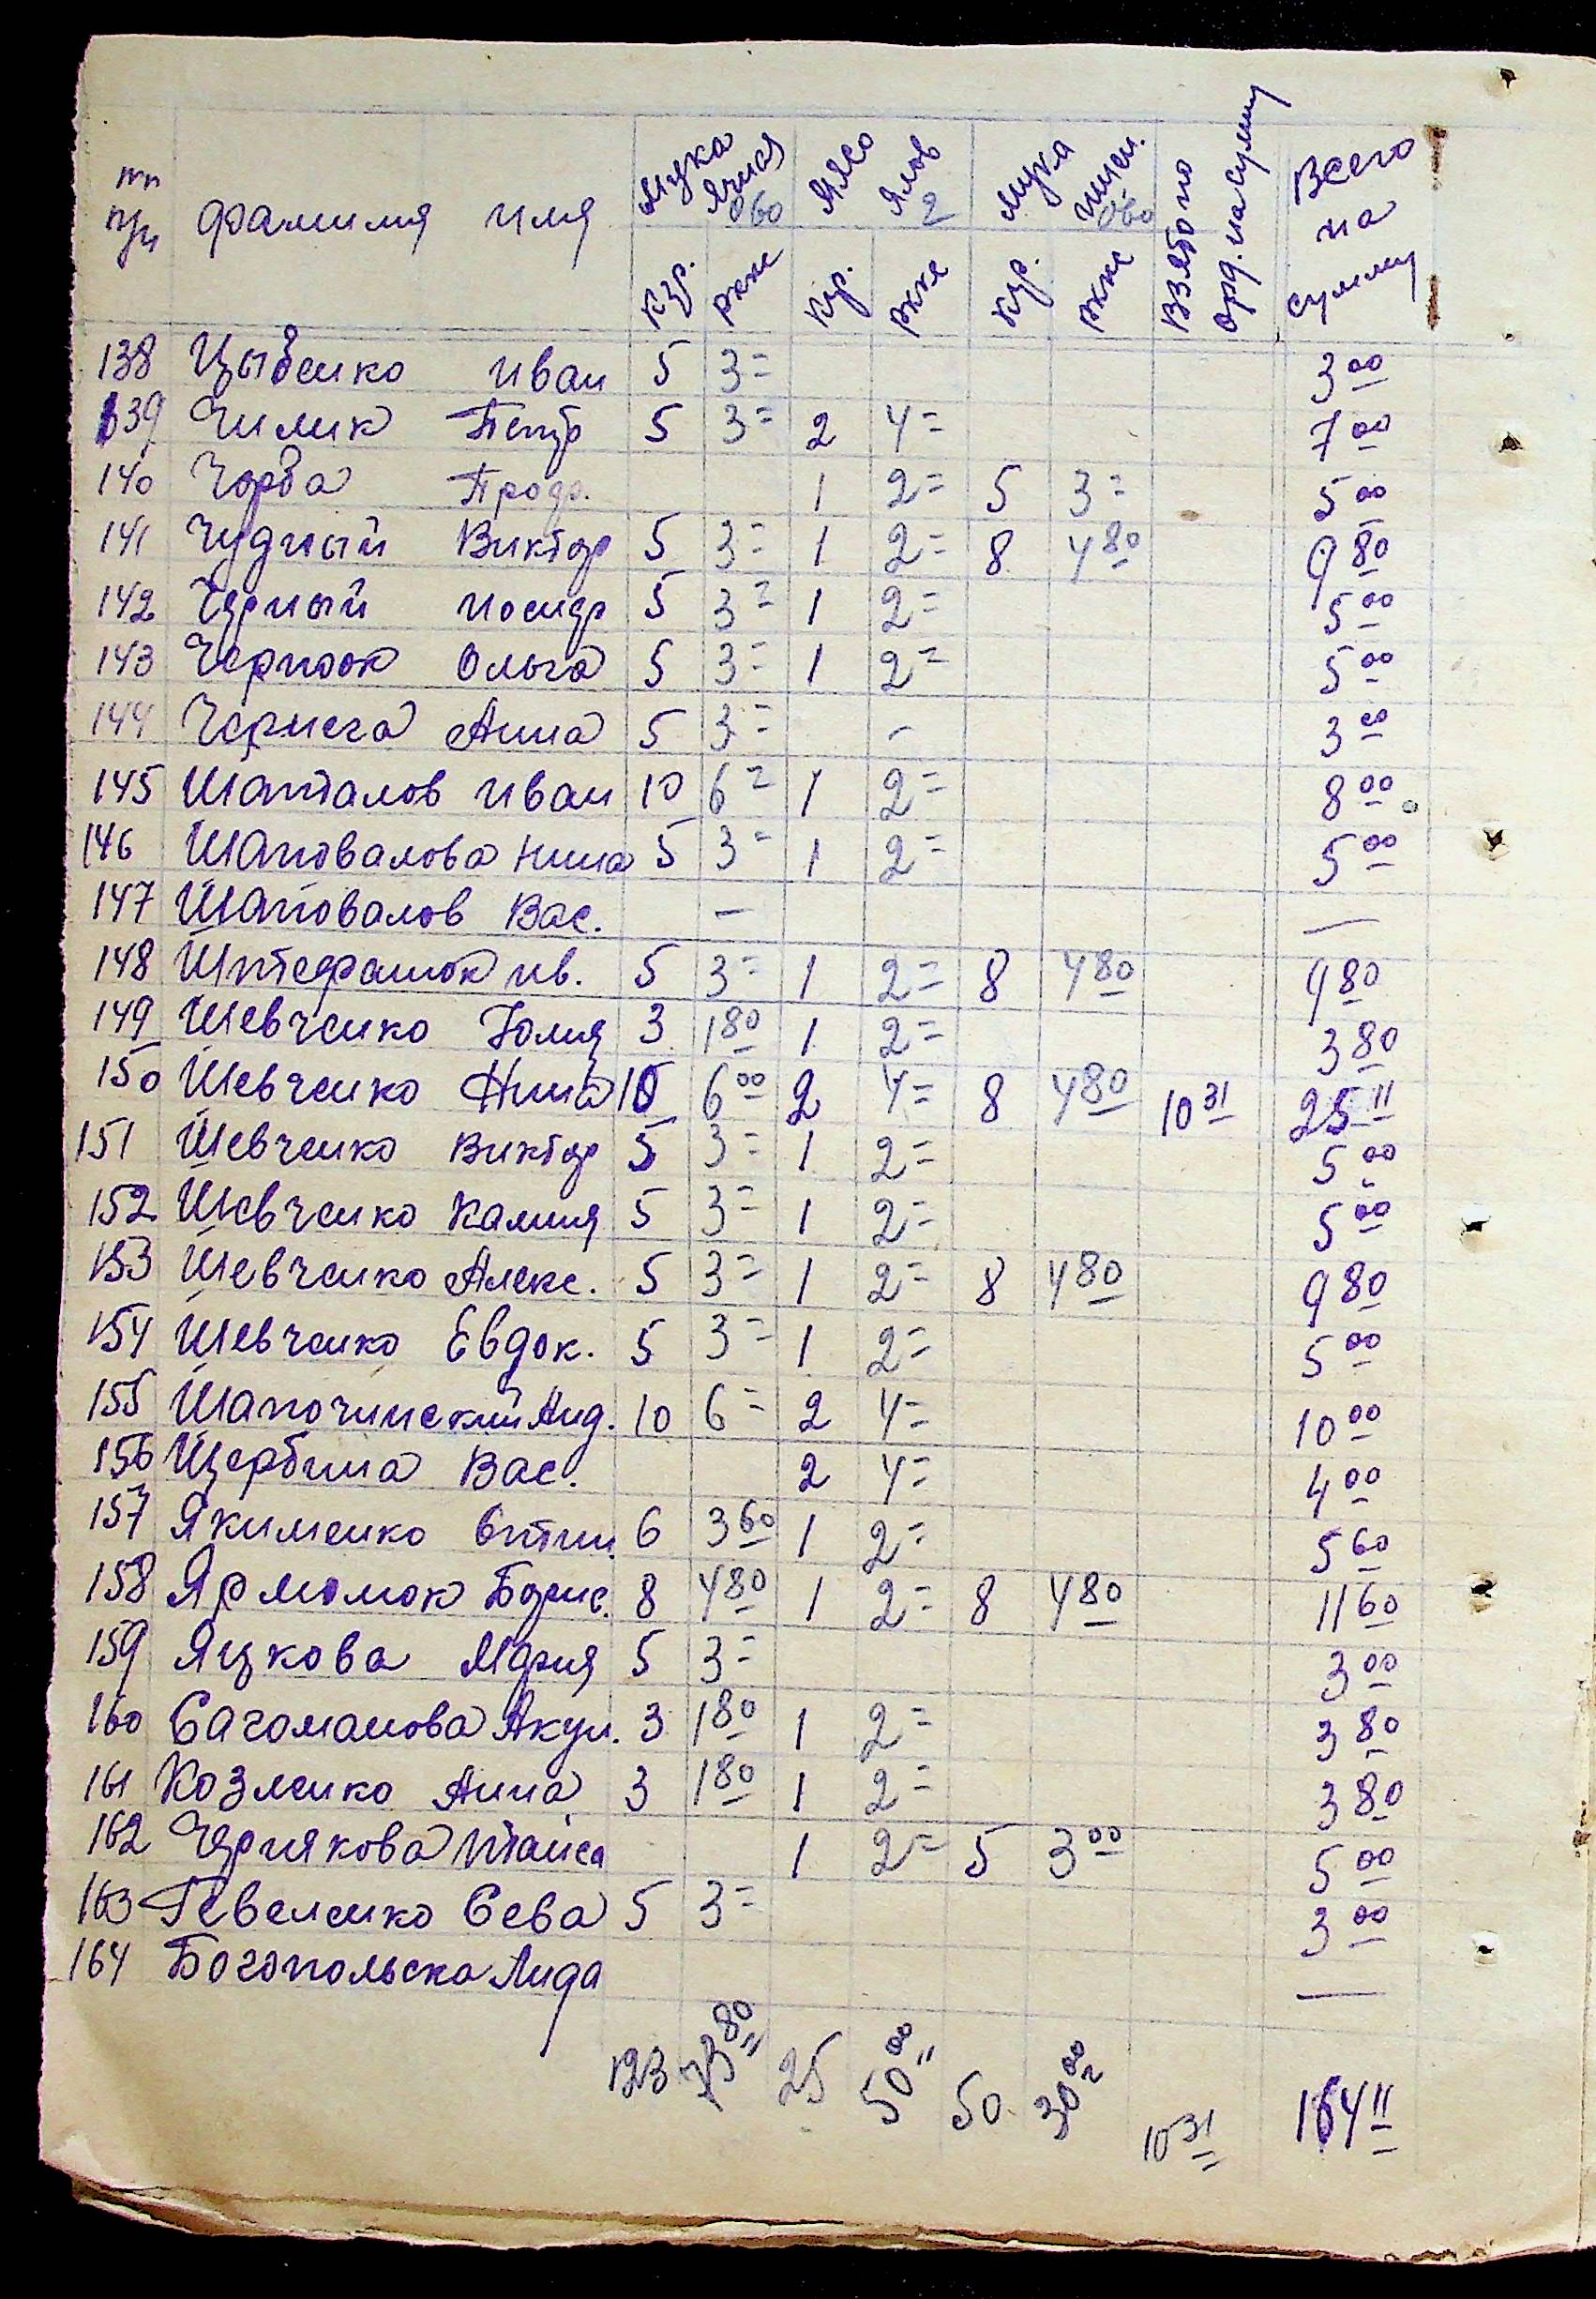 nn п/п фамилия имя Мука ячная 060 Мясо Ялов 2 мука пшен. 060 Взято по орд. на сумму Всего на сумму
кгр. ржке кгр. ржке кгр. ржке
138 Цыбенко Иван 5 3= 3 00
139 Чилик Петр 5 3= 2 4= 7 00
140 Чорба Прод. 1 2= 5 3= 5 00
141 Чудный Виктор 5 3= 1 2= 8 4 80 9 80
142 Черный Иосиф 5 3= 1 2= 5 00
143 Чернюк Ольга 5 3= 1 2= 5 00
144 Чернега Анна 5 3= – 3 00
145 Шаталов Иван 10 6= 1 2= 8 00
146 Шаповалова Нина 5 3= 1 2= 5 00
147 Шаповалов Вас. — —
148 Штефанюк Ив. 5 3= 1 2= 8 4 80 9 80
149 Шевченко Юлия 3 1 80 1 2= 3 80
150 Шевченко Нина 10 6 00 2 4= 8 4 80 10 31 25 11
151 Шевченко Виктор 5 3= 1 2= 5 00
152 Шевченко 5 3= 1 2= 5 00
153 Шевченко Алекс. 5 3= 1 2= 8 4 80 9 80
154 Шевченко Евдок. 5 3= 1 2= 5 00
155 Шапочинский 10 6= 2 4= 10 00
156 Щербина Вас. 2 4= 4 00
157 Якименко 6 3 60 1 2= 5 60
158 Ярмолюк Борис. 8 4 80 1 2= 8 4 80 11 60
159 Яцкова Мария 5 3= 3 00
160 Сагоманова Акул. 3 1 80 1 2= 3 80
161 Козленко Анна 3 1 80 1 2= 3 80
162 Чернякова Таиса 1 2= 5 3 00 5 00
163 Гевеленко Сева 5 3= 3 00
164 Богопольска Лида —
123 73 80 25 50 00 50. 30 00 10 31 164 11